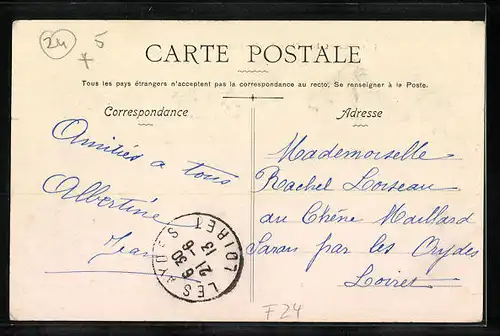 24
5
+
CARTE POSTALE
Tous les pays étrangers n'acceptent pas la correspondance au recto; Se renseigner à la Poste.
Correspondance
Adresse
Amitiés a tous
Albertine
Jean
Mademoiselle
Rachel Loiseau
au Chêne Maillard
Saran par les Aydes
Loiret
LES AYDES
6 30
21 -6
13
LOIRET
F24